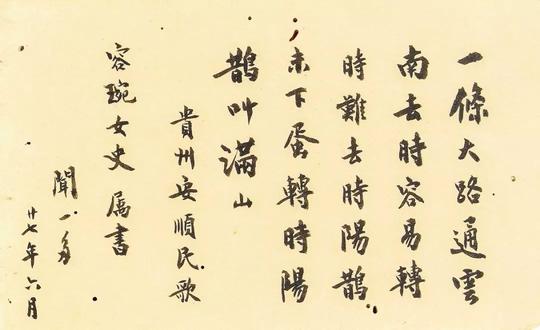 一條大路通雲
南去時容易轉
時難去時陽鵲
未下蛋轉時陽
鵲叫滿山
貴州安順民歌
容琬女史属書
聞一多
廿七年六月